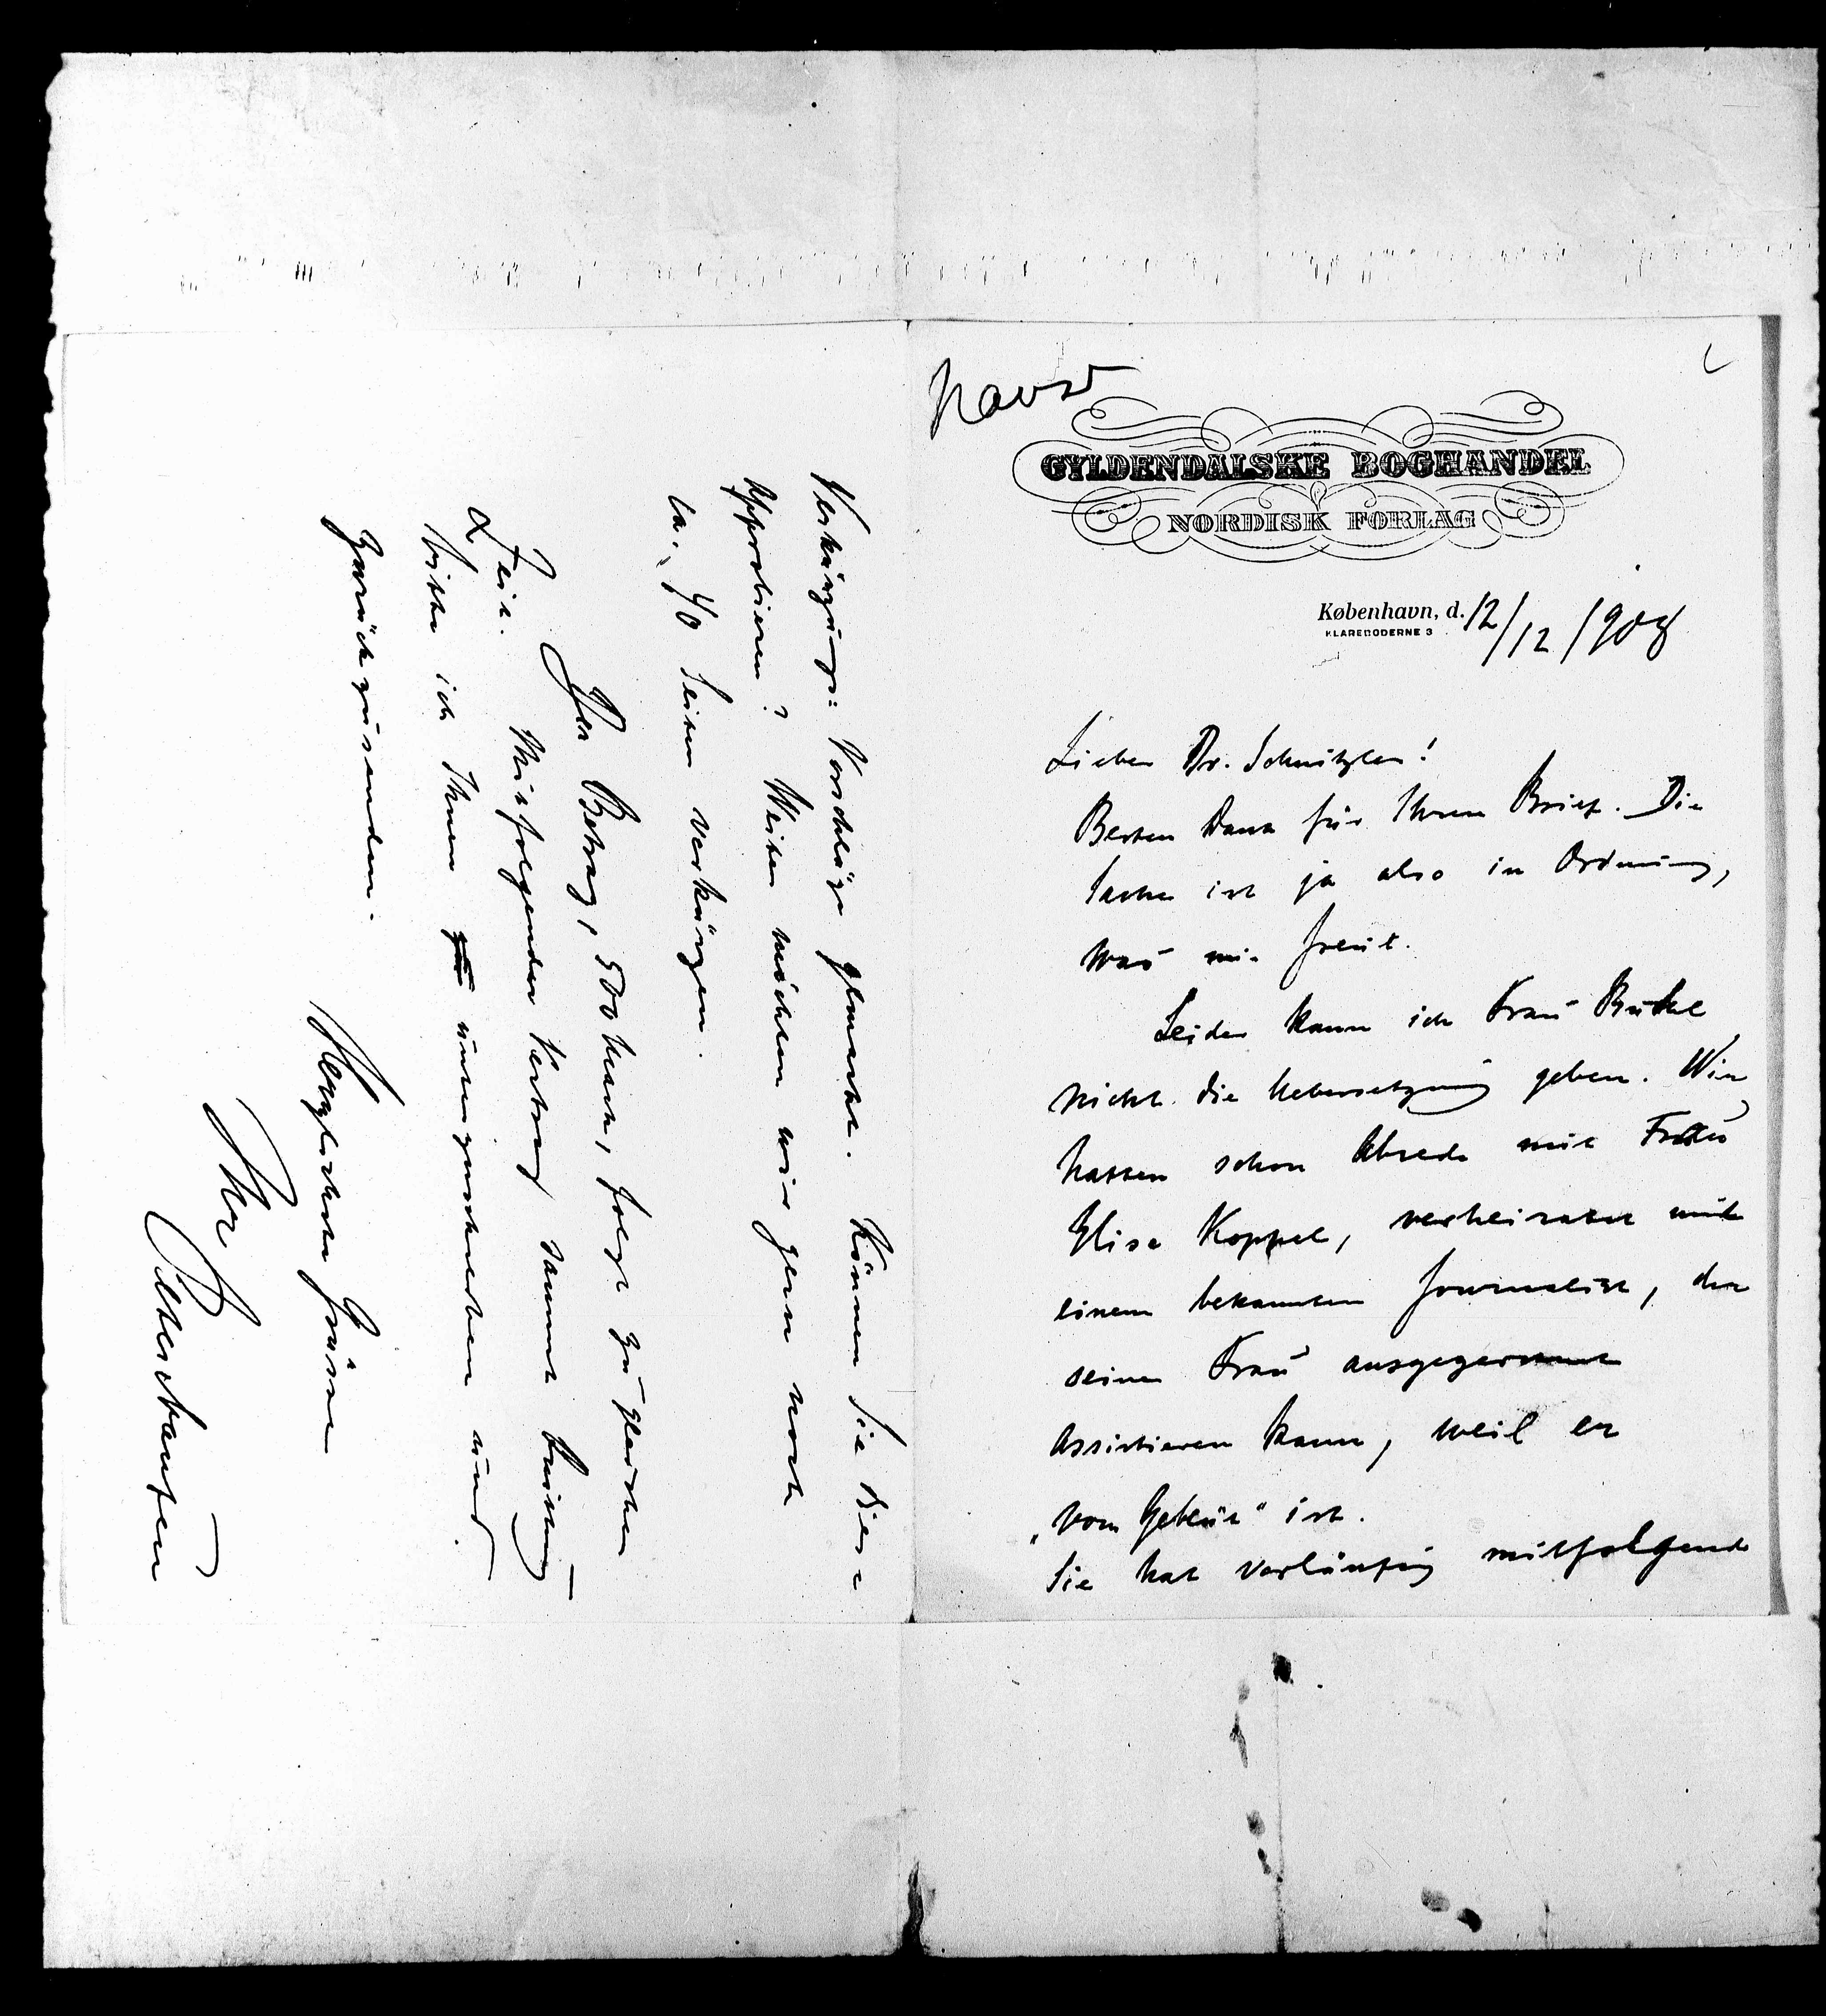 Nansen
GYLDENDALSKE BOGHANDEL
NORDISK FORLAG
København, d. 12/12 1908
KLAREBODERNE 3
Lieber Dr. Schnitzler!
Besten Dank für Ihren Brief. Die
Sache ist ja also in Ordnung,
was mir freut.
Leider kann ich Frau
nicht die Uebersetzung geben. Wir
hatten schon Abrede mit Frau
Elise Koppel, verheiratet mit
einem bekannten Journalist, der
seiner Frau ausgezeichnet
assistieren kann, weil er
„vom Geblüt“ ist.
Sie hat vorläufig mitfolgende
Verkürzungs-Vorschläge gemacht. Können Sie diese
approbieren? Weiter möchten wir gern noch
ca. 40 Seiten verkürzen.
Der Betrag, 500 Mark, folgt zu gleicher
Zeit. Mitfolgender Vertrag sammt Quittung
bitte ich Ihnen unterzuschreiben und
zurückzusenden.
Herzlichste Grüsse
Ihr